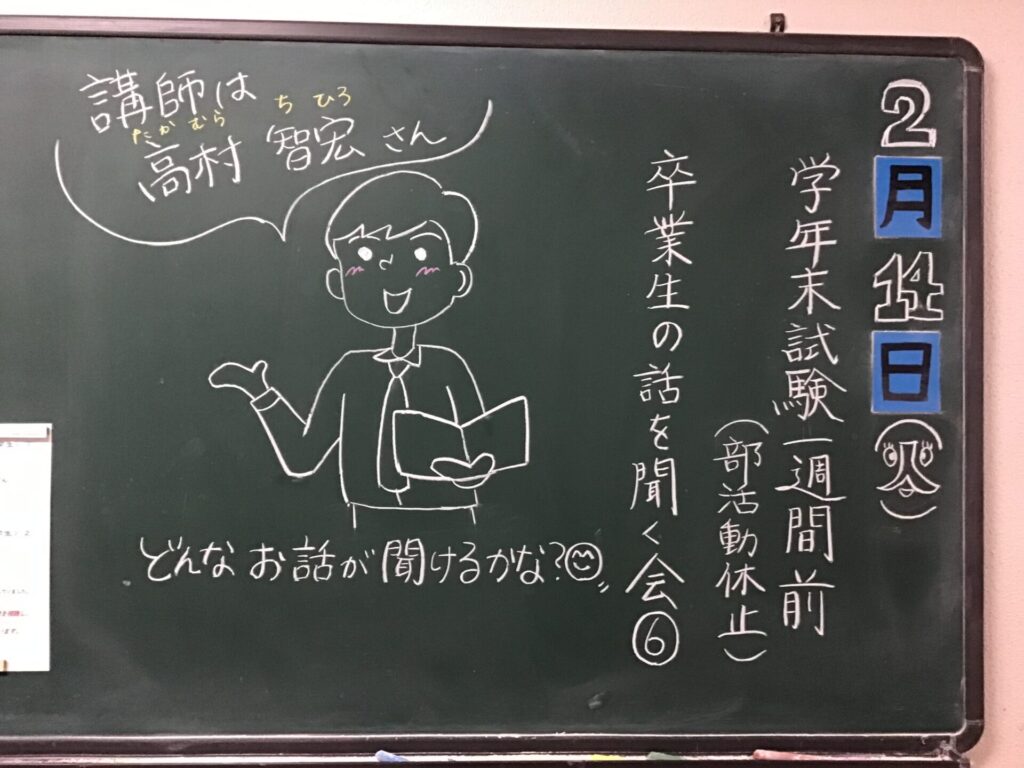 2月14日(火)
学年末試験一週間前
(部活動休止)
卒業生の話を聞く会⑥
講師は
たかむら ちひろ
高村 智宏 さん
どんなお話が聞けるかな?